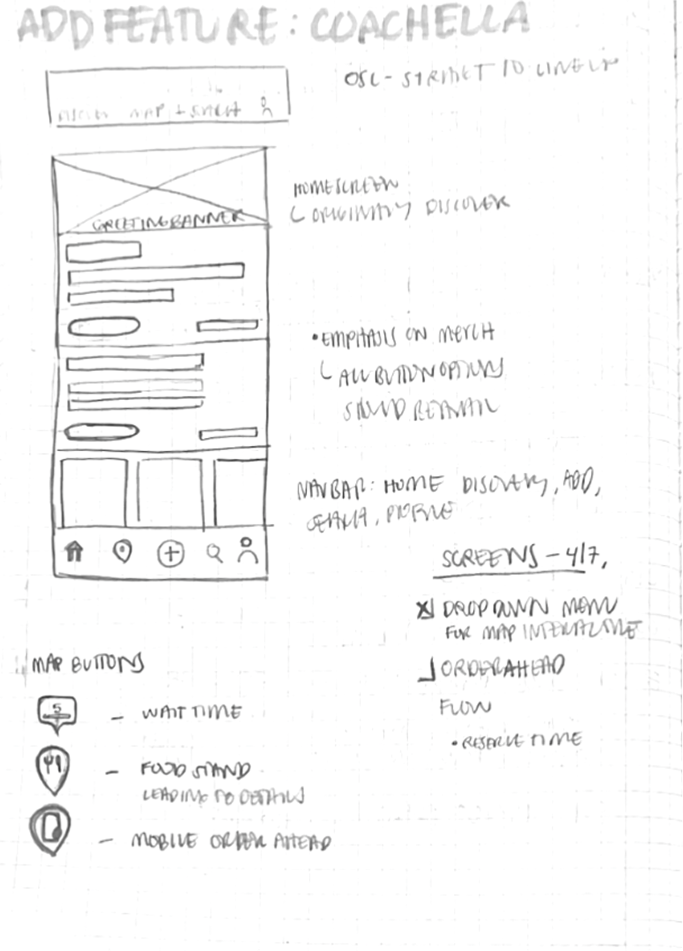 ADD FEATURE: COACHELLA
MAP
GREETING BANNER
HOMESCREEN
ORIGINALLY DISCOVER
• EMPHASIS ON MERCH
ALL BUTTON OPTIONS
NAVBAR: HOME DISCOVERY, ADD,
SEARCH, PROFILE
SCREENS - 4/7,
DROPDOWN MENU
FOR MAP INTERACTIVE
ORDER AHEAD
FLOW
• RESERVE TIME
MAP BUTTONS
5
- WAIT TIME
- FOOD STAND
LEADING TO DETAILS
- MOBILE ORDER AHEAD